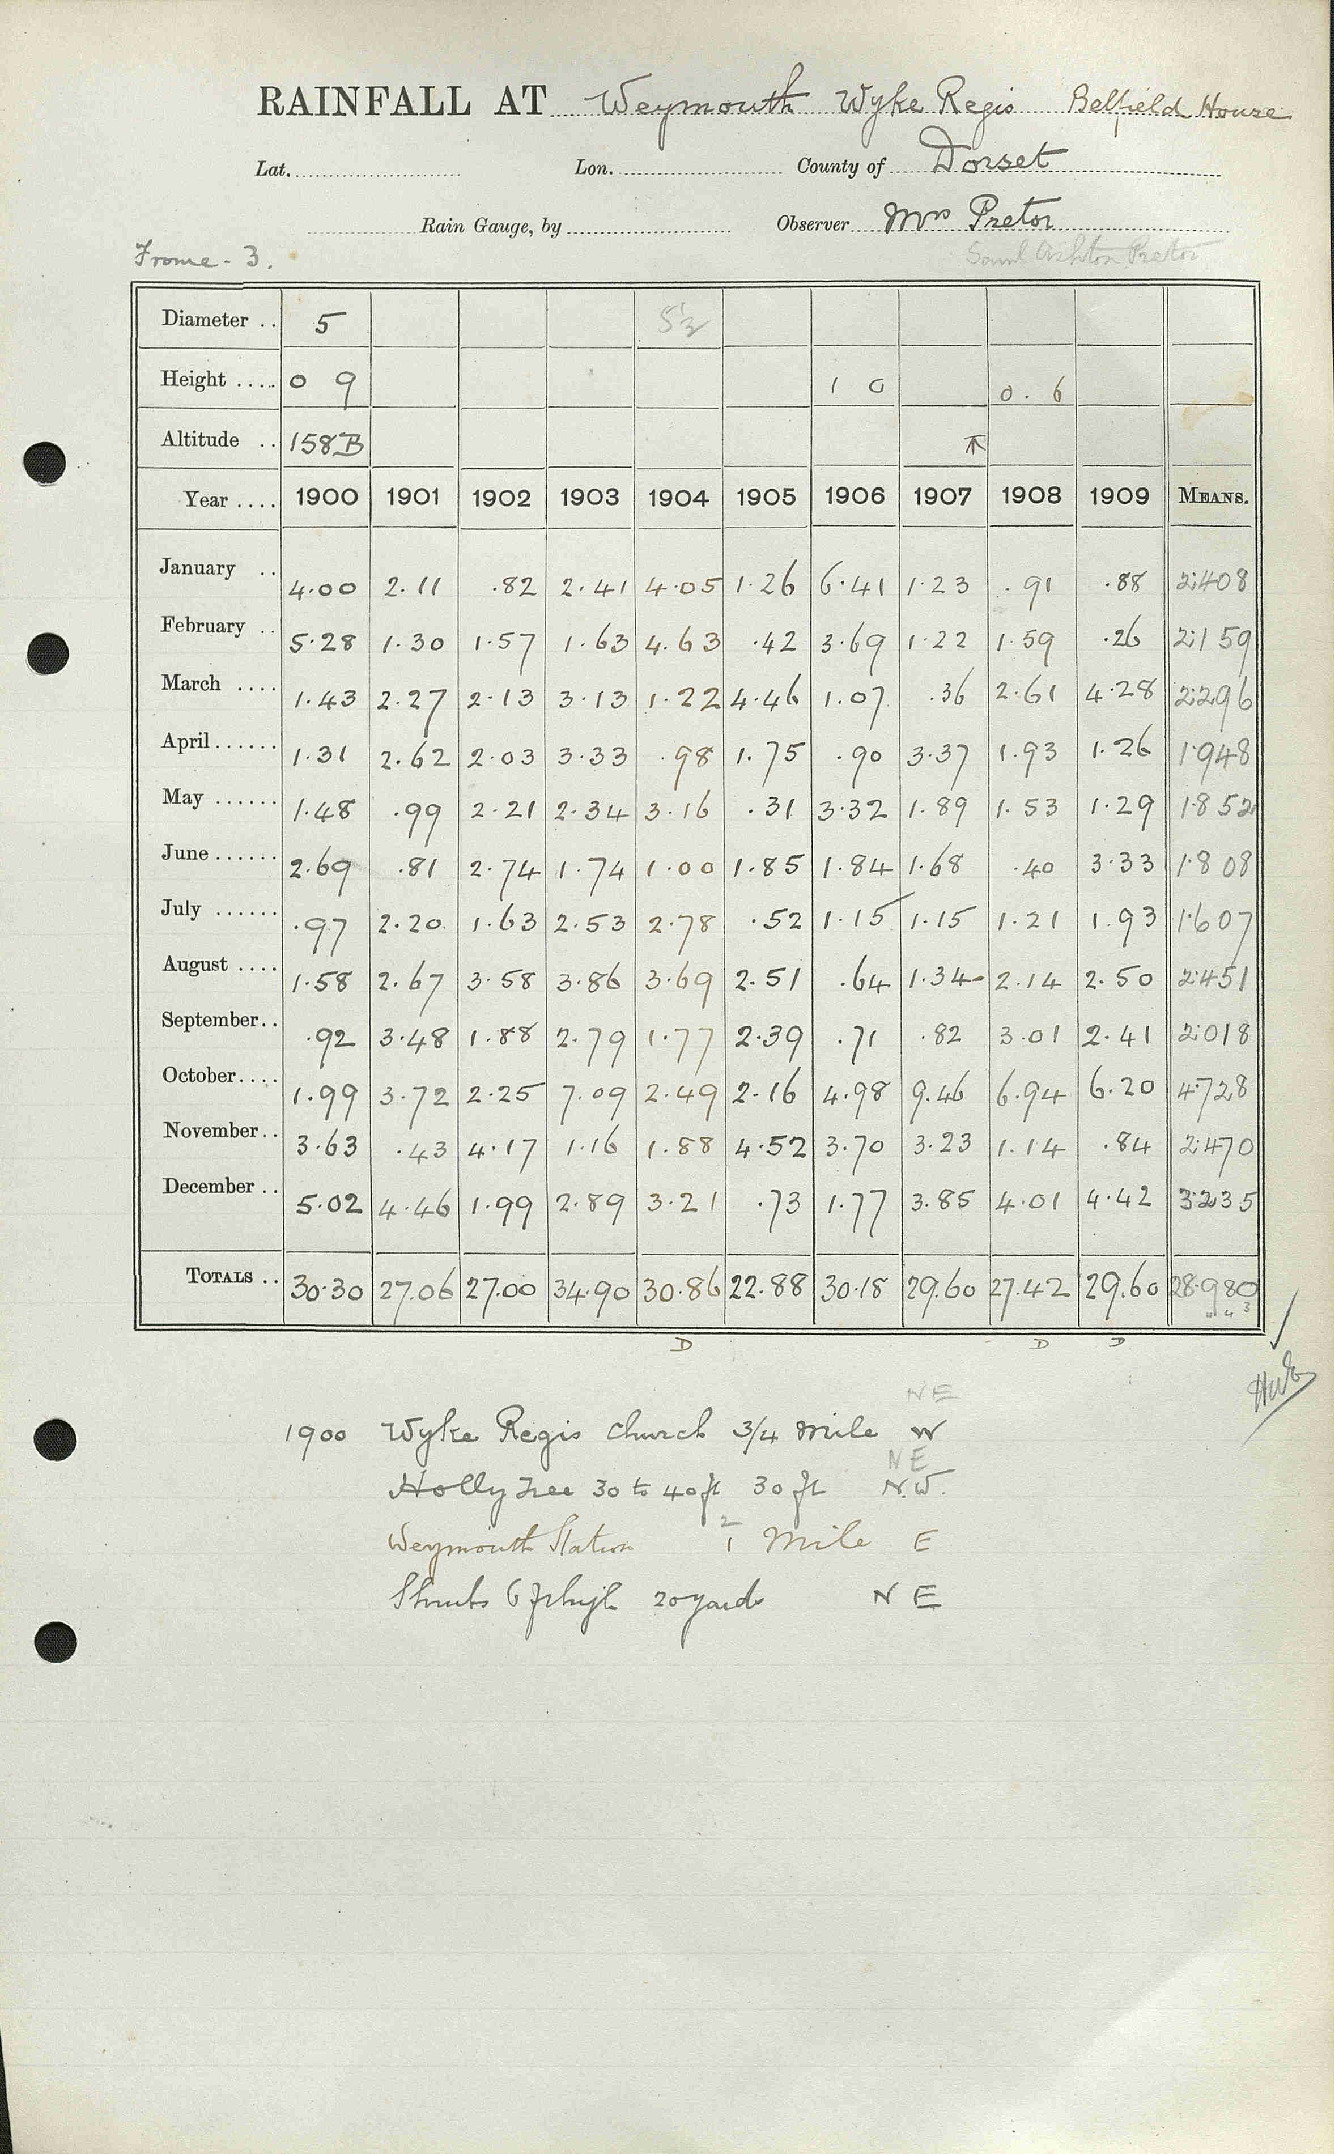 RAINFALL AT Weymouth Wyke Regis Belfield House
Lat. Lon. County of Dorset
Rain Gauge, by Observer Mrs Pretor
Frome - 3. Saml Ashton Pretor
Diameter .. 5 5½
Height .... 0 9 1 0 0.6
Altitude .. 158B
Year .... 1900 1901 1902 1903 1904 1905 1906 1907 1908 1909 MEANS.
January .. 4.00 2.11 .82 2.41 4.05 1.26 6.41 1.23 .91 .88 2.408
February .. 5.28 1.30 1.57 1.63 4.63 .42 3.69 1.22 1.59 .26 2.159
March .... 1.43 2.27 2.13 3.13 1.22 4.46 1.07 .36 2.61 4.28 2.296
April...... 1.31 2.62 2.03 3.33 .98 1.75 .90 3.37 1.93 1.26 1.948
May ...... 1.48 .99 2.21 2.34 3.16 .31 3.32 1.89 1.53 1.29 1.852
June...... 2.69 .81 2.74 1.74 1.00 1.85 1.84 1.68 .40 3.33 1.808
July ...... .97 2.20 1.63 2.53 2.78 .52 1.15 1.15 1.21 1.93 1.607
August .... 1.58 2.67 3.58 3.86 3.69 2.51 .64 1.34 2.14 2.50 2.451
September.. .92 3.48 1.88 2.79 1.77 2.39 .71 .82 3.01 2.41 2.018
October.... 1.99 3.72 2.25 7.09 2.49 2.16 4.98 9.46 6.94 6.20 4.728
November.. 3.63 .43 4.17 1.16 1.88 4.52 3.70 3.23 1.14 .84 2.470
December .. 5.02 4.46 1.99 2.89 3.21 .73 1.77 3.85 4.01 4.42 3.235
TOTALS .. 30.30 27.06 27.00 34.90 30.86 22.88 30.18 29.60 27.42 29.60 28.980
D D D
NE
1900 Wyke Regis Church 3/4 mile W
NE
Holly Tree 30 to 40 ft 30 ft N.W.
2
Weymouth Station 1 Mile E
Shrubs 6 ft high 20 yards N E